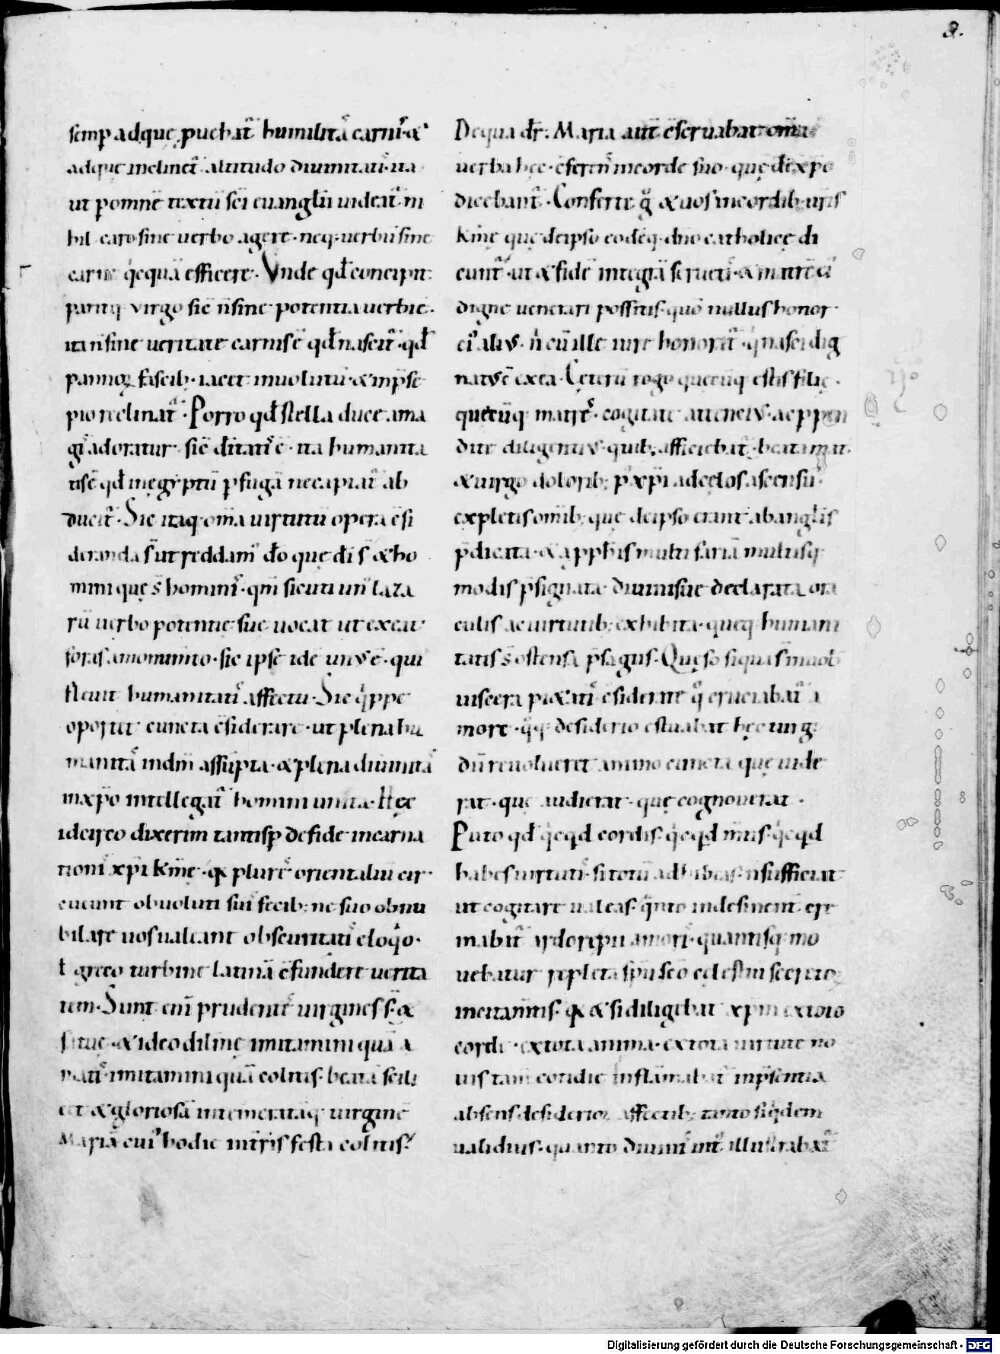 8.
semp adque puehat humilitā carnis &
adque inclinet altitudo diuinitatis ita
ut p omnē textū sci euanglii uideat ni
hil caro sine uerbo agere neq; uerbū sine
carne qcquā efficere. Vnde qđ concipit
paritq; virgo sic n̄ sine potentia uerbi ē.
ita n̄ sine ueritate carnis ē qđ nascit. qđ
pannoꝝ fasciis iacet inuolutū & in p̄se
pio reclinat. Porro qđ stella duce a ma
gis adoratur sic ditatis ē. ita humanita
tis ē qđ in egyptū p fugā ne capiat ab
ducit. Sic itaq; om̄a uirtutū opera c̄si
deranda s̄ ut reddam' do que di s̄ & ho
mini que s̄ hominis. qm̄ sicuti un' laza
rū uerbo potentie sue uocat ut exeat
foras a monum̄to. sic ipse idē unus ē. qui
fleuit humanitatis affectu. Sic q̄ppe
oportet cuncta c̄siderare. ut plena hu
manitas in dn̄i assūpta. & plena diuinitas
in xp̄o intellegat homini unita. Hęc
idcirco dixerim tantisp de fide incarna
tionis xp̄i kmę. qa plures orientaliū cir
cueunt obuoluti sui fecib; ne suo obnu
bilare uos ualeant obscuritatis eloq̄o.
ł greco turbine latinā c̄fundere uerita
tem. Sunt eni prudentes uirgines s̄. &
fatuę. & ideo dilmę imitamini quā a
matis. imitamini quā colitis. beatā scili
cet & gloriosā intemeratāq; uirginē
Mariā cui' hodie in tr̄is festa colitis.
De qua dr̄. Maria aut c̄seruabat om̄a
uerba hec. c̄ferens in corde suo. que de xp̄o
dicebant. Conferte g & uos in cordib; uris
kmę que de ipso eodeq; dn̄o catholice di
cunt. ut & fidē integrā seruetis. & matrē ei
digne uenerari possitis. quō nullus honor
ei' alius. n̄ cū ille iure honorat. q nasci dig
natus ē ex ea. Ceterū rogo quecūq; estis filię.
quecūq; matres. cogitate attencius. ac ppen
dite diligentius. quib; afficiebat beata mat
& uirgo dolorib; p' xp̄i ad celos ascensū
expletis omib; que de ipso erant ab angl̄is
p̄dicata. & a pph̄is multi fariā multisq;
modis p̄signata. diuinisue declarata ora
culis ac uirtutib; exhibita. queq; humani
tatis s̄ ostensa p̄sagiis. Queso siqua s̄ in uob
uiscera pietatis. c̄siderate q̄ cruciabat a
more. q̄ desiderio estuabat hec uirgo
dū reuolueret animo cuncta que uide
rat. que audierat. que cognouerat.
Puto qđ qcqd cordis. qcqd m̄tis. qcqd
habes uirtutis. si totū adhibeas. n̄ sufficiat
ut cogitare ualeas. q̄nto indesinent cre
mabit' ardore pii amoris. quantisq; mo
uebatur repleta sp̄u sc̄o celestiū secreto
incitam̄tis. qa & si diligebat xp̄m ex toto
corde. ex tota anima. ex tota uirtute no
uis tam̄ cotidie inflāmabat in p̄sentia
absens desiderioꝝ affectib;. tanto siq̄dem
ualidius. quanto diuinitus int' illustrabat
Digitalisierung gefördert durch die Deutsche Forschungsgemeinschaft - DFG